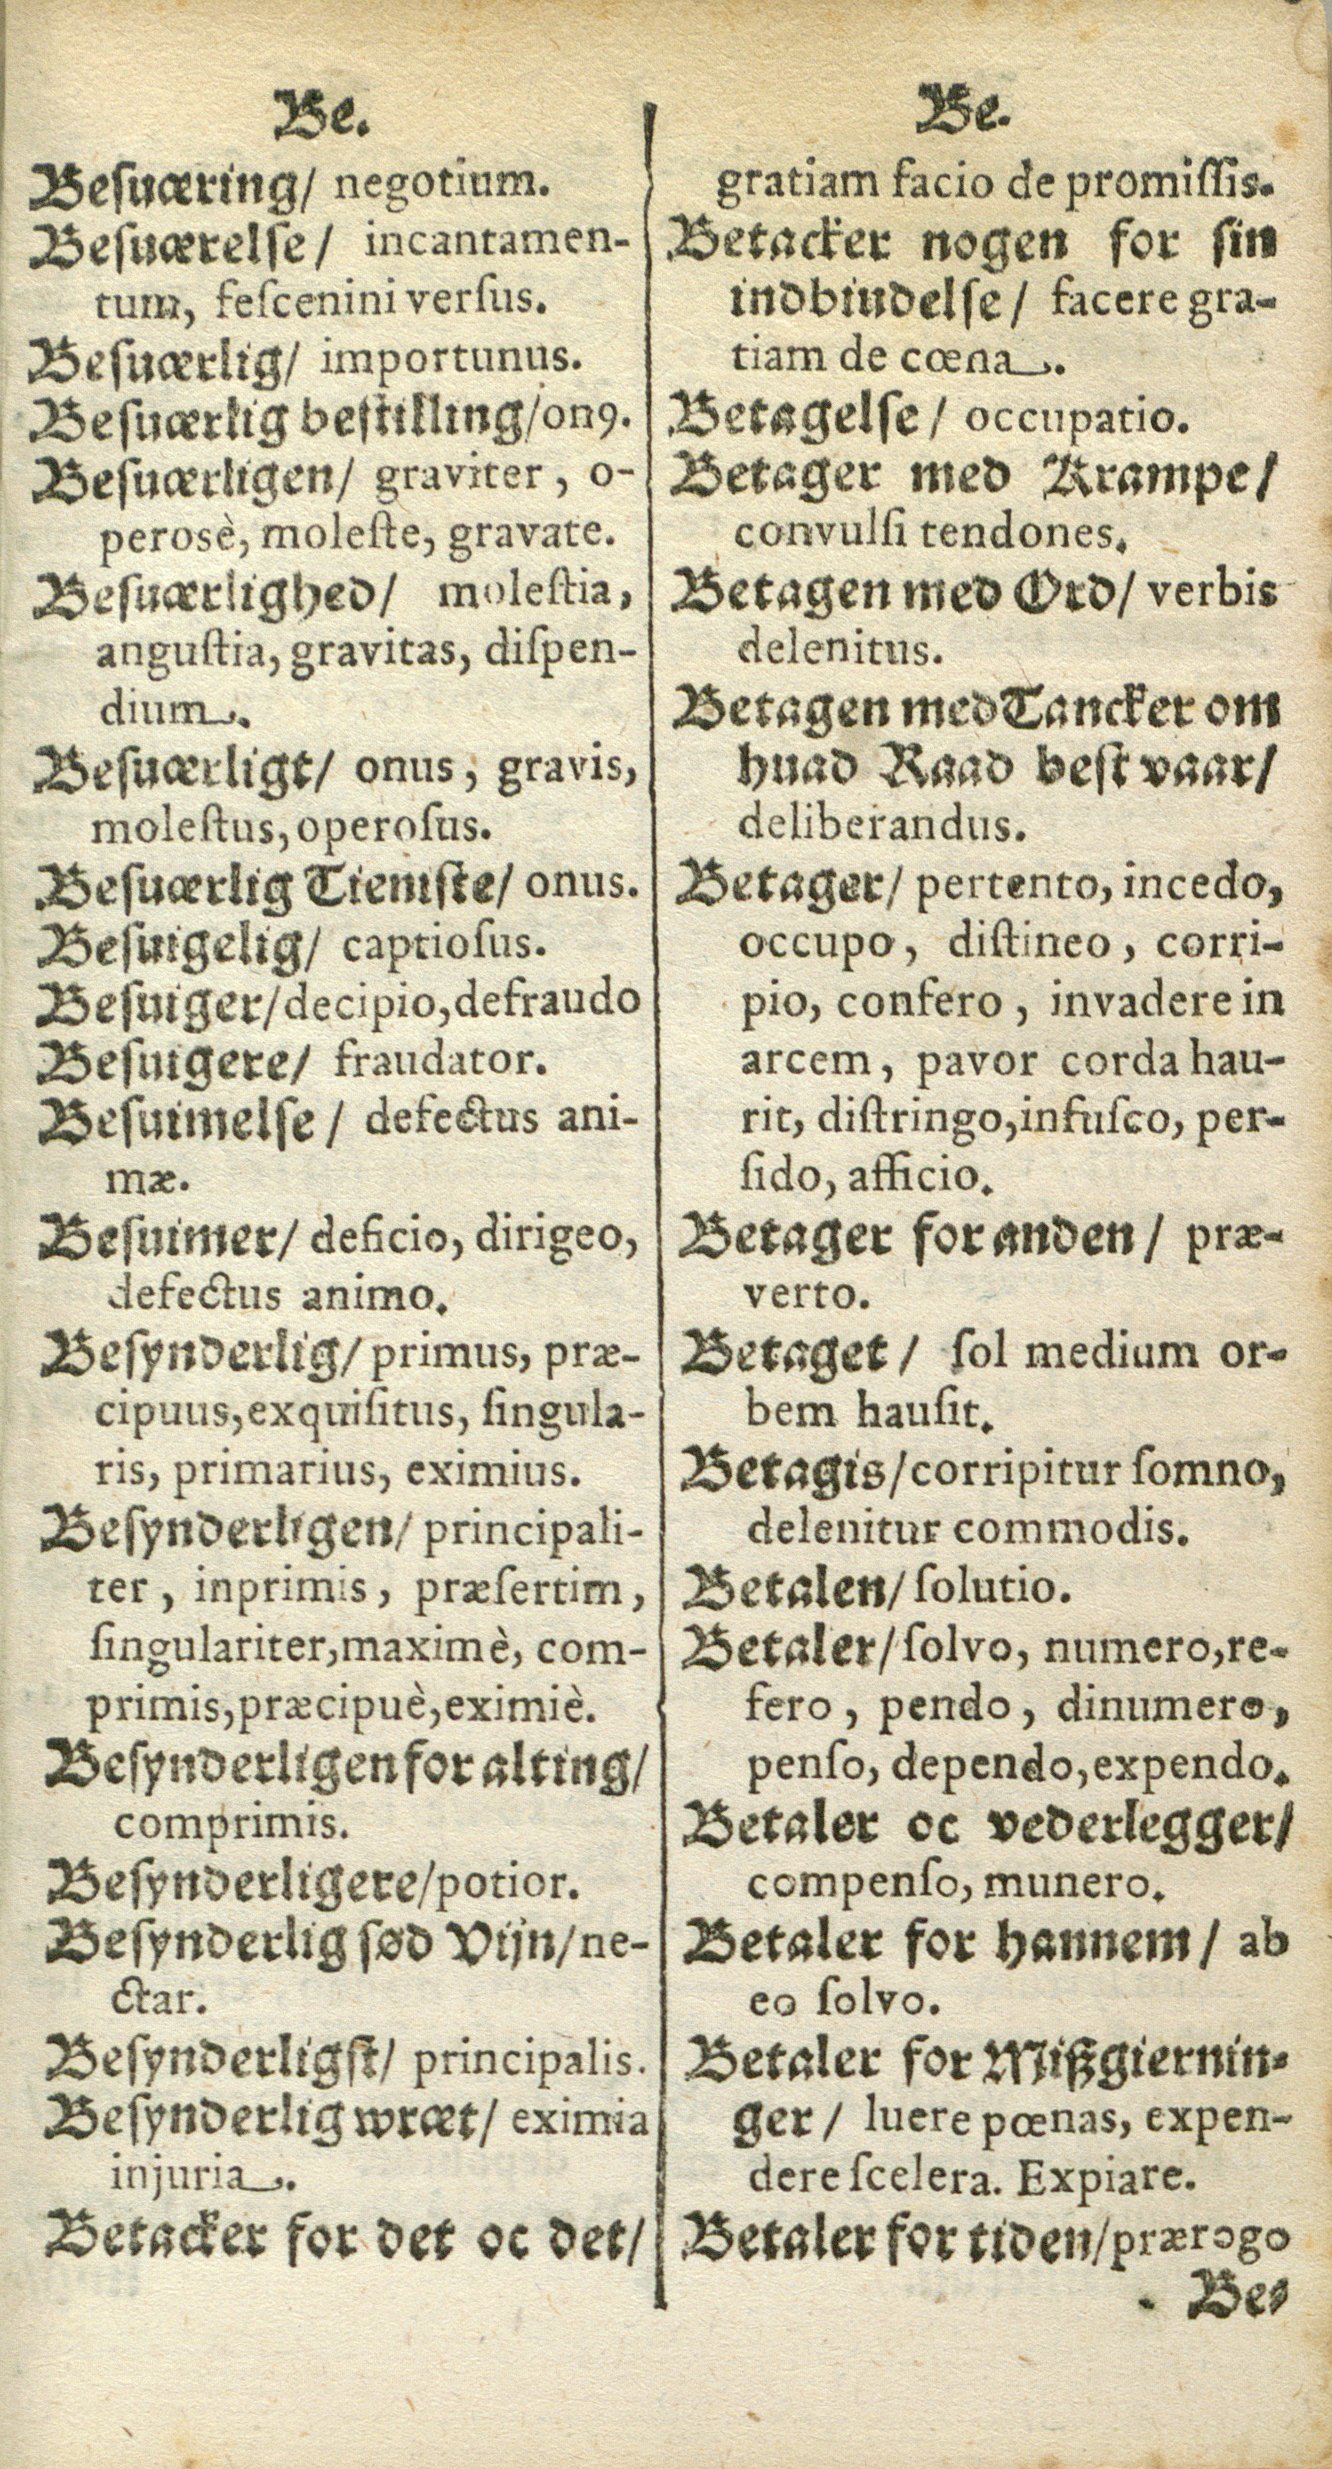 Be.
Besuæring/ negotium.
Besuærelse/ incantamen-
tum, feſcenini verſus.
Besuærlig/ importunus.
Besuærlig bestilling/onꝰ.
Besuærligen/ graviter, o-
perosè, moleſte, gravate.
Besuærlighed/ moleſtia,
anguſtia, gravitas, diſpen-
dium.
Besuærligt/ onus, gravis,
moleſtus, operoſus.
Besuærlig Tieniste/ onus.
Besuigelig/ captioſus.
Besuiger/decipio,defraudo
Besuigere/ fraudator.
Besuimelse/ defectus ani-
mæ.
Besuimer/ deficio, dirigeo,
defectus animo.
Besynderlig/ primus, præ-
cipuus,exquiſitus, ſingula-
ris, primarius, eximius.
Besynderligen/ principali-
ter, inprimis, præſertim,
ſingulariter,maximè, com-
primis,præcipuè,eximiè.
Besynderligen for alting/
comprimis.
Besynderligere/potior.
Besynderlig sød Vijn/ne-
ctar.
Besynderligst/ principalis.
Besynderlig wræt/ eximia
injuria.
Betacker for det oc det/
Be.
gratiam facio de promiſſis.
Betacker nogen for sin
indbindelse/ facere gra-
tiam de cœna.
Betagelse/ occupatio.
Betager med Krampe/
convulſi tendones.
Betagen med Ord/ verbis
delenitus.
Betagen med Tancker om
huad Raad best vaar/
deliberandus.
Betager/ pertento, incedo,
occupo, diſtineo, corri-
pio, confero, invadere in
arcem, pavor corda hau-
rit, diſtringo,infuſco, per-
ſido, afficio.
Betager for anden/ præ-
verto.
Betaget/ ſol medium or-
bem hauſit.
Betagis/corripitur ſomno,
delenitur commodis.
Betalen/ ſolutio.
Betaler/ ſolvo, numero,re-
fero, pendo, dinumero,
penſo, dependo,expendo.
Betaler oc vederlegger/
compenſo, munero.
Betaler for hannem/ ab
eo ſolvo.
Betaler for Mißgiernin-
ger/ luere pœnas, expen-
dere ſcelera. Expiare.
Betaler for tiden/prærogo
Be-